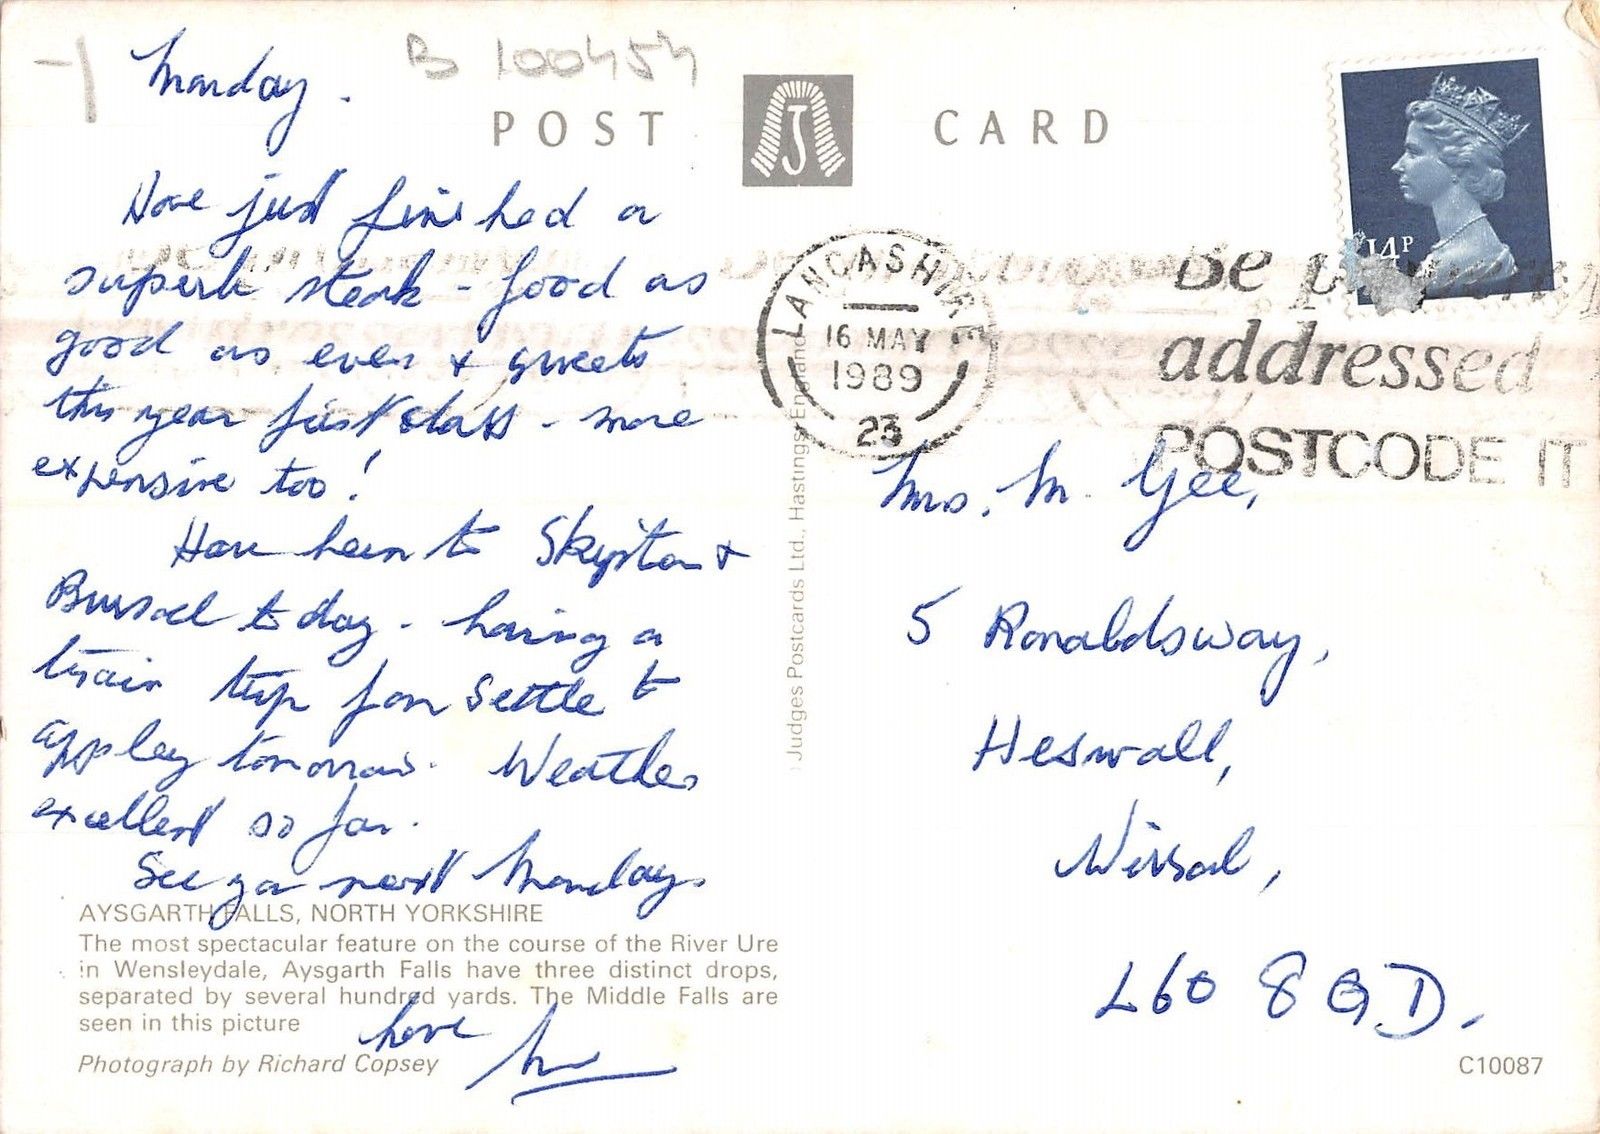 B 100454
POST CARD
J
14P
LANCASHIRE
16 MAY
1989
23
Be
addressed
POSTCODE IT
Monday.
Have just finished a
superb steak - food as
good as ever & sweets
this year first class - more
expensive too!
Have been to Skipton &
today - having a
train trip from Settle to
appley tomorrow. Weather
excellent so far.
See you next Monday.
love
Mrs. M. Gee,
5 Ronaldsway,
Heswall,
Wirral,
L60 8QD.
Judges Postcards Ltd., Hastings, England
AYSGARTH FALLS, NORTH YORKSHIRE
The most spectacular feature on the course of the River Ure
in Wensleydale, Aysgarth Falls have three distinct drops,
separated by several hundred yards. The Middle Falls are
seen in this picture
Photograph by Richard Copsey
C10087